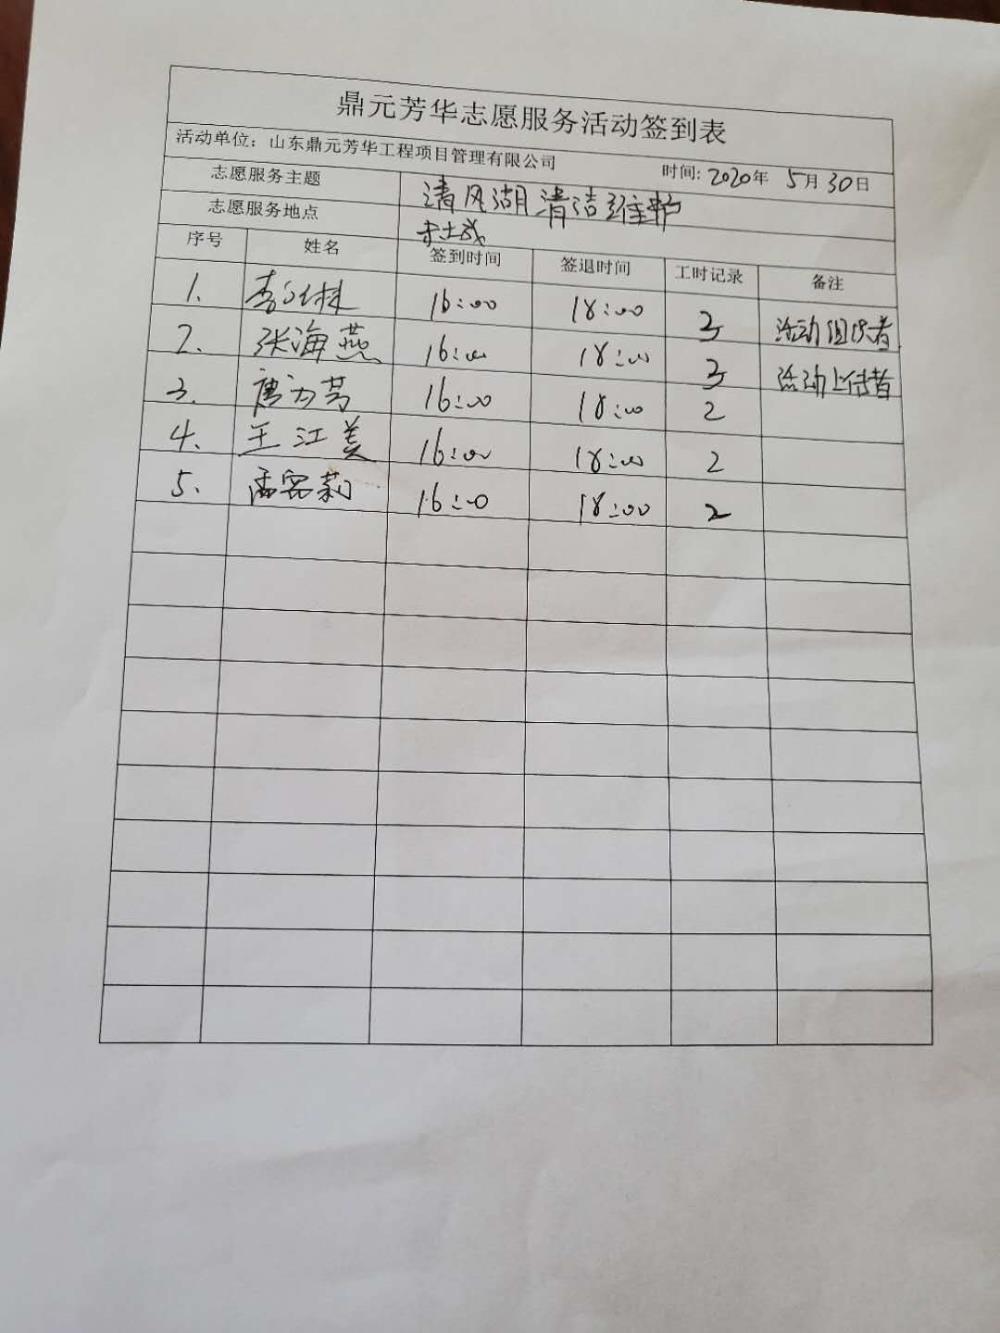 鼎元芳华志愿服务活动签到表
活动单位：山东鼎元芳华工程项目管理有限公司 时间: 2020年 5月30日
志愿服务主题 清风湖清洁维护
志愿服务地点
序号 姓名 签到时间 签退时间 工时记录 备注
1. 16:00 18:00 3 活动组织者
2. 张海燕 16:00 18:00 3 活动上传者
3. 唐为芳 16:00 18:00 2
4. 王江美 16:00 18:00 2
5. 莉 16:00 18:00 2